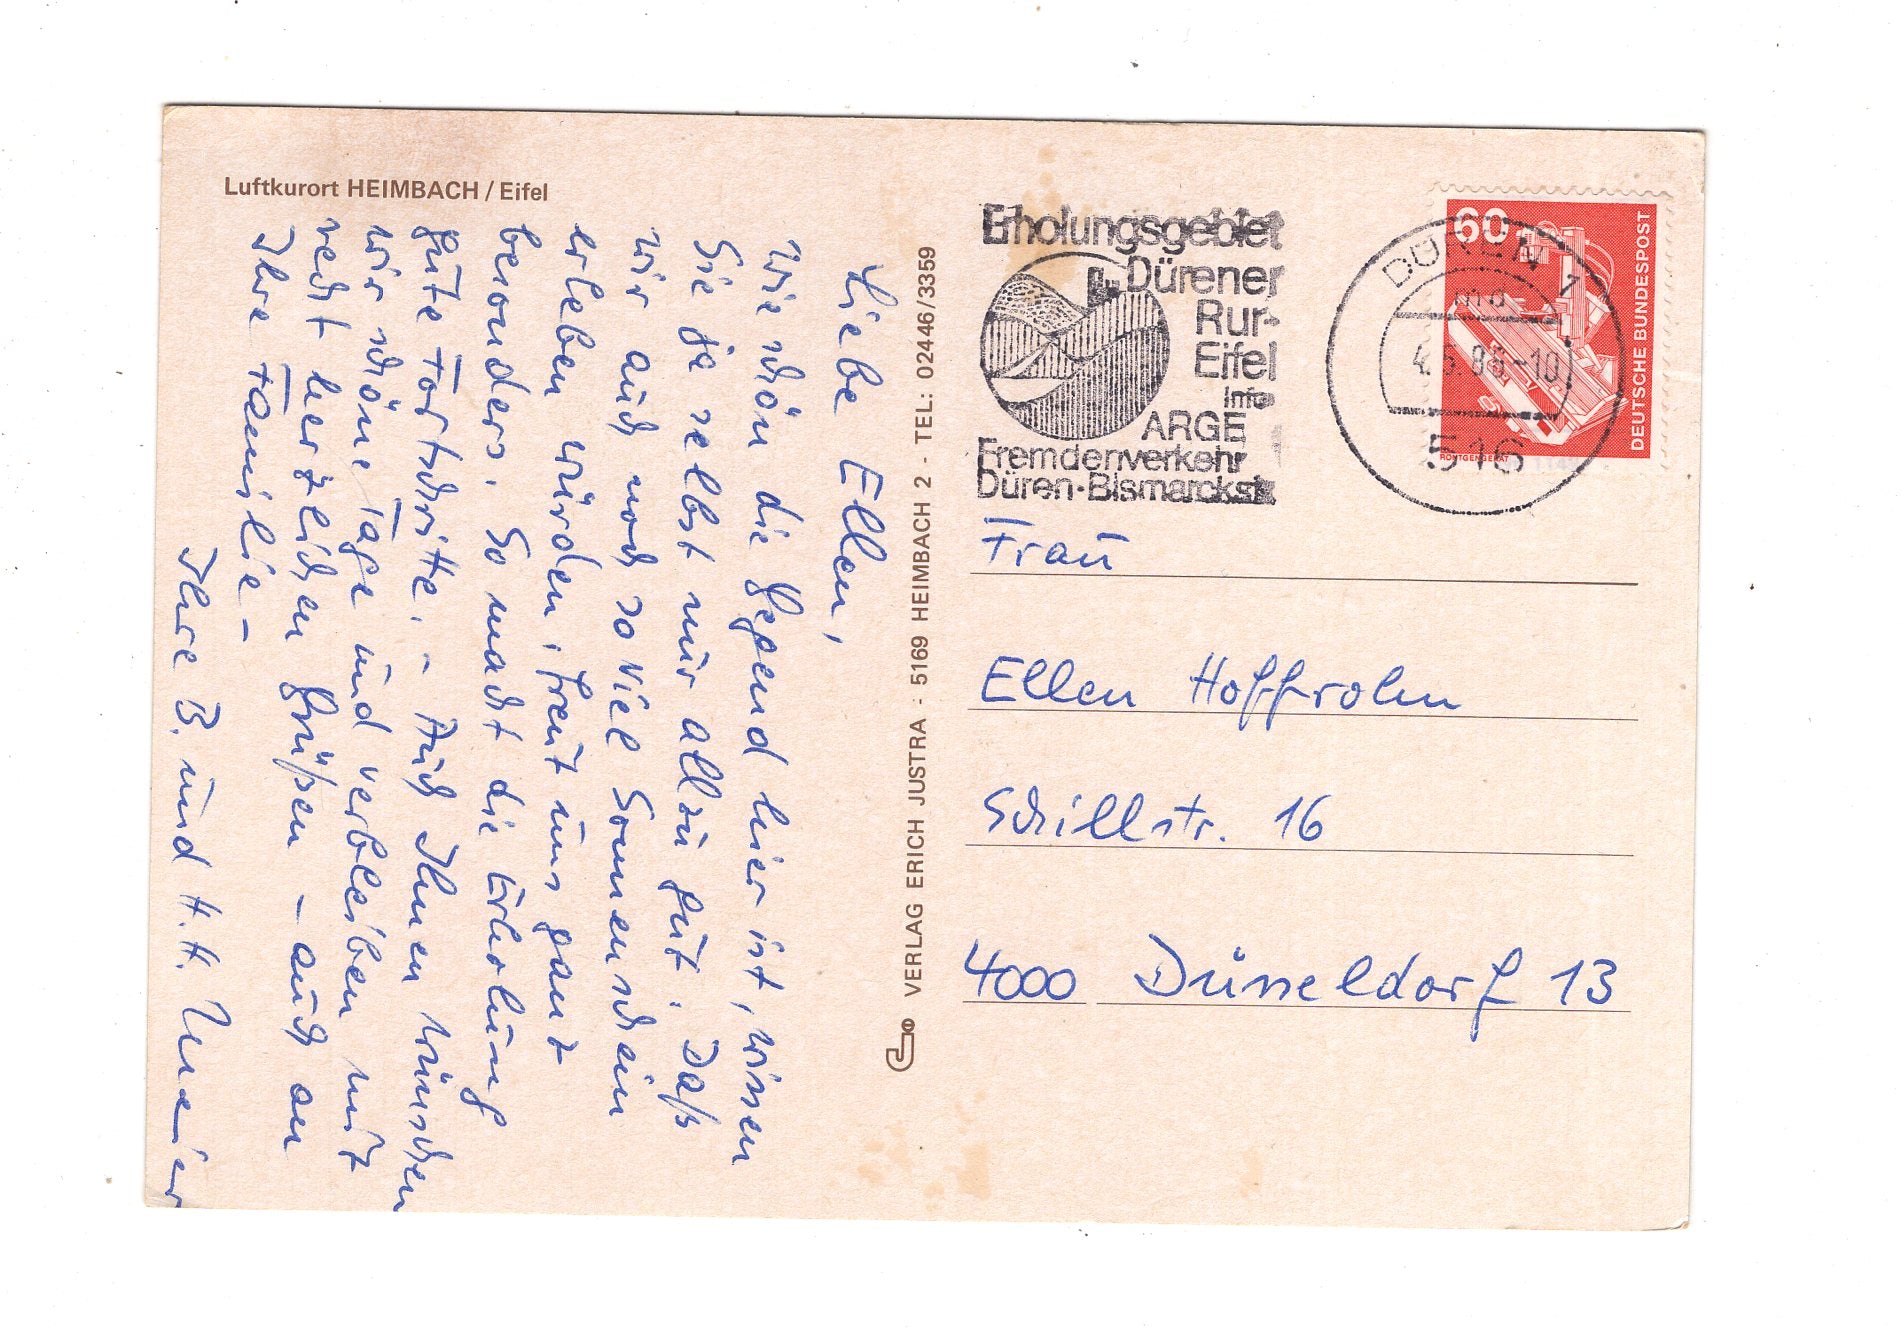 Luftkurort HEIMBACH / Eifel
Liebe Ellen,
wie schön die Gegend hier ist, wissen
Sie ja selbst nur allzu gut. Daß
wir auch noch soviel Sonnenschein
erleben würden, freut uns ganz
besonders. So macht die Erholung
gute Fortschritte. - Auch Ihnen wünschen
wir schöne Tage und verbleiben mit
recht herzlichen Grüßen - auch an
Ihre Familie -
Ihre B. und H. H.
VERLAG ERICH JUSTRA · 5169 HEIMBACH 2 - TEL: 02446/3359
Erholungsgebiet
Dürener
Rur-
Eifel
Info
ARGE
Fremdenverkehr
Düren·Bismarckstr.
DÜREN 1
.5.86-10
516
60
DEUTSCHE BUNDESPOST
RÖNTGENGERÄT
Frau
Ellen Hoffrohn
Schillstr. 16
4000 Düsseldorf 13